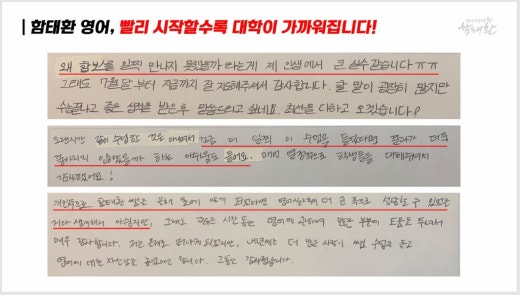 | 함태환 영어, 빨리 시작할수록 대학이 가까워집니다!
함태환
왜 함보스를 일찍 만나지 못했을까 라는게 제 인생에서 큰 실수같습니다 ㅠㅠ
그래도 7월달부터 지금까지 잘 지도해주셔서 감사합니다. 할 말이 굉장히 많지만
수능끝나고 좋은 성적을 받은후 말씀드리고 싶네요. 최선을 다하고 오겠습니다!
오랜시간 같이 수업한 것은 아니여서 조금 더 일찍 이 수업을 들었다면 결과가 더욱
좋아지지 않았을까 하는 아쉬움도 들어요. 매번 열정적으로 학생들을 대해주셔서
감사했어요!
개인적으로 함태환 쌤은 올해 초에 알게 되었다면 영어실력이 더 큰 폭으로 성장할 수 있었을
거라 생각해서 아쉽지만, 그래도 짧은 시간 동안 영어에 관하여 많은 부분에 도움을 주셔서
매우 감사합니다. 저는 올해로 떠나게 되겠지만, 내년에는 더 많은 사람이 쌤 수업을 듣고
영어에 대한 자신감을 얻었으면 합니다. 그동안 감사했습니다.